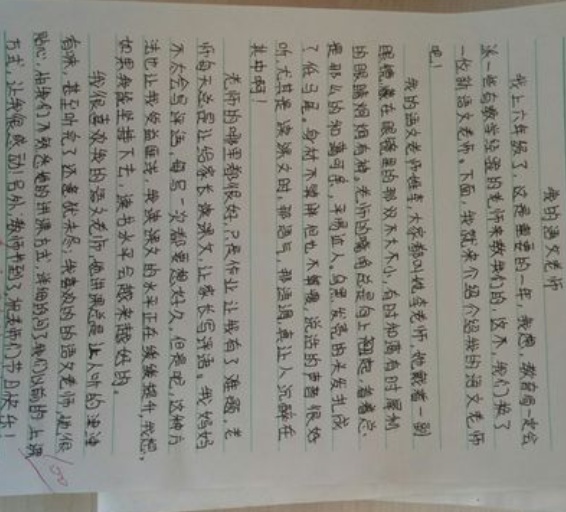 我的语文老师
我上六年级了，这是重要的一年，我想，教育局一定会
派一些有教学经验的老师来教我们的，这不，我们换了
一位新语文老师。下面，我就来介绍介绍我的语文老师
吧！
我的语文老师姓李大家都叫她李老师，她戴着一副
眼镜藏在眼镜里的那双不大不小，有时和蔼有时犀利
的眼睛炯炯有神。老师的嘴角总是向上翘起，看着总
是那么的和蔼可亲，平易近人。乌黑发亮的头发扎成
了低马尾。身材不算胖但也不算瘦，说话的声音很好
听，尤其是读课文时，那语气，那语调，真让人沉醉在
其中啊！
老师的哪里都很好，只是作业让我有了难题。老
师每天总是让给家长读课文，让家长写评语。我妈妈
不太会写评语，每写一次都要想好久，但是呢，这种方
法也让我受益匪浅，我读课文的水平正在继续提升，我想，
如果我能坚持下去，读书水平会越来越好的。
我很喜欢我的语文老师，她讲课总是让人听的津津
有味，甚至听完了还意犹未尽。我喜欢的的语文老师，她很
贴心，怕我们不熟悉她的讲课方式，详细的问了我们以前的上课
方式，让我很感动！另外，教师节到了，祝老师们节日快乐！
100